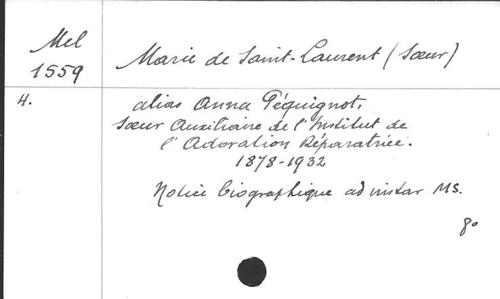 Mel
1559
Marie de Saint-Laurent (Sœur)
4.
alias Anna Péquignot,
Sœur Auxiliaire de l'Institut de
l'Adoration Réparatrice.
1878-1932
Notice biographique ad instar MS.
8°